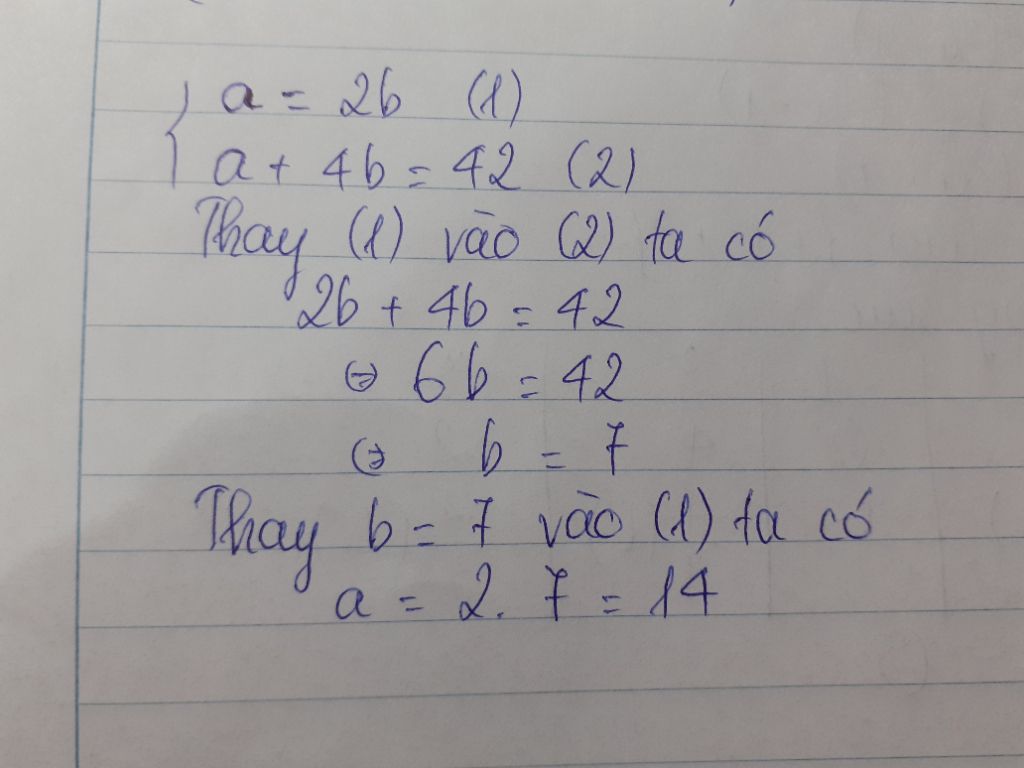 { a = 2b (1)
a + 4b = 42 (2)
Thay (1) vào (2) ta có
2b + 4b = 42
⇔ 6b = 42
⇔ b = 7
Thay b = 7 vào (1) ta có
a = 2. 7 = 14